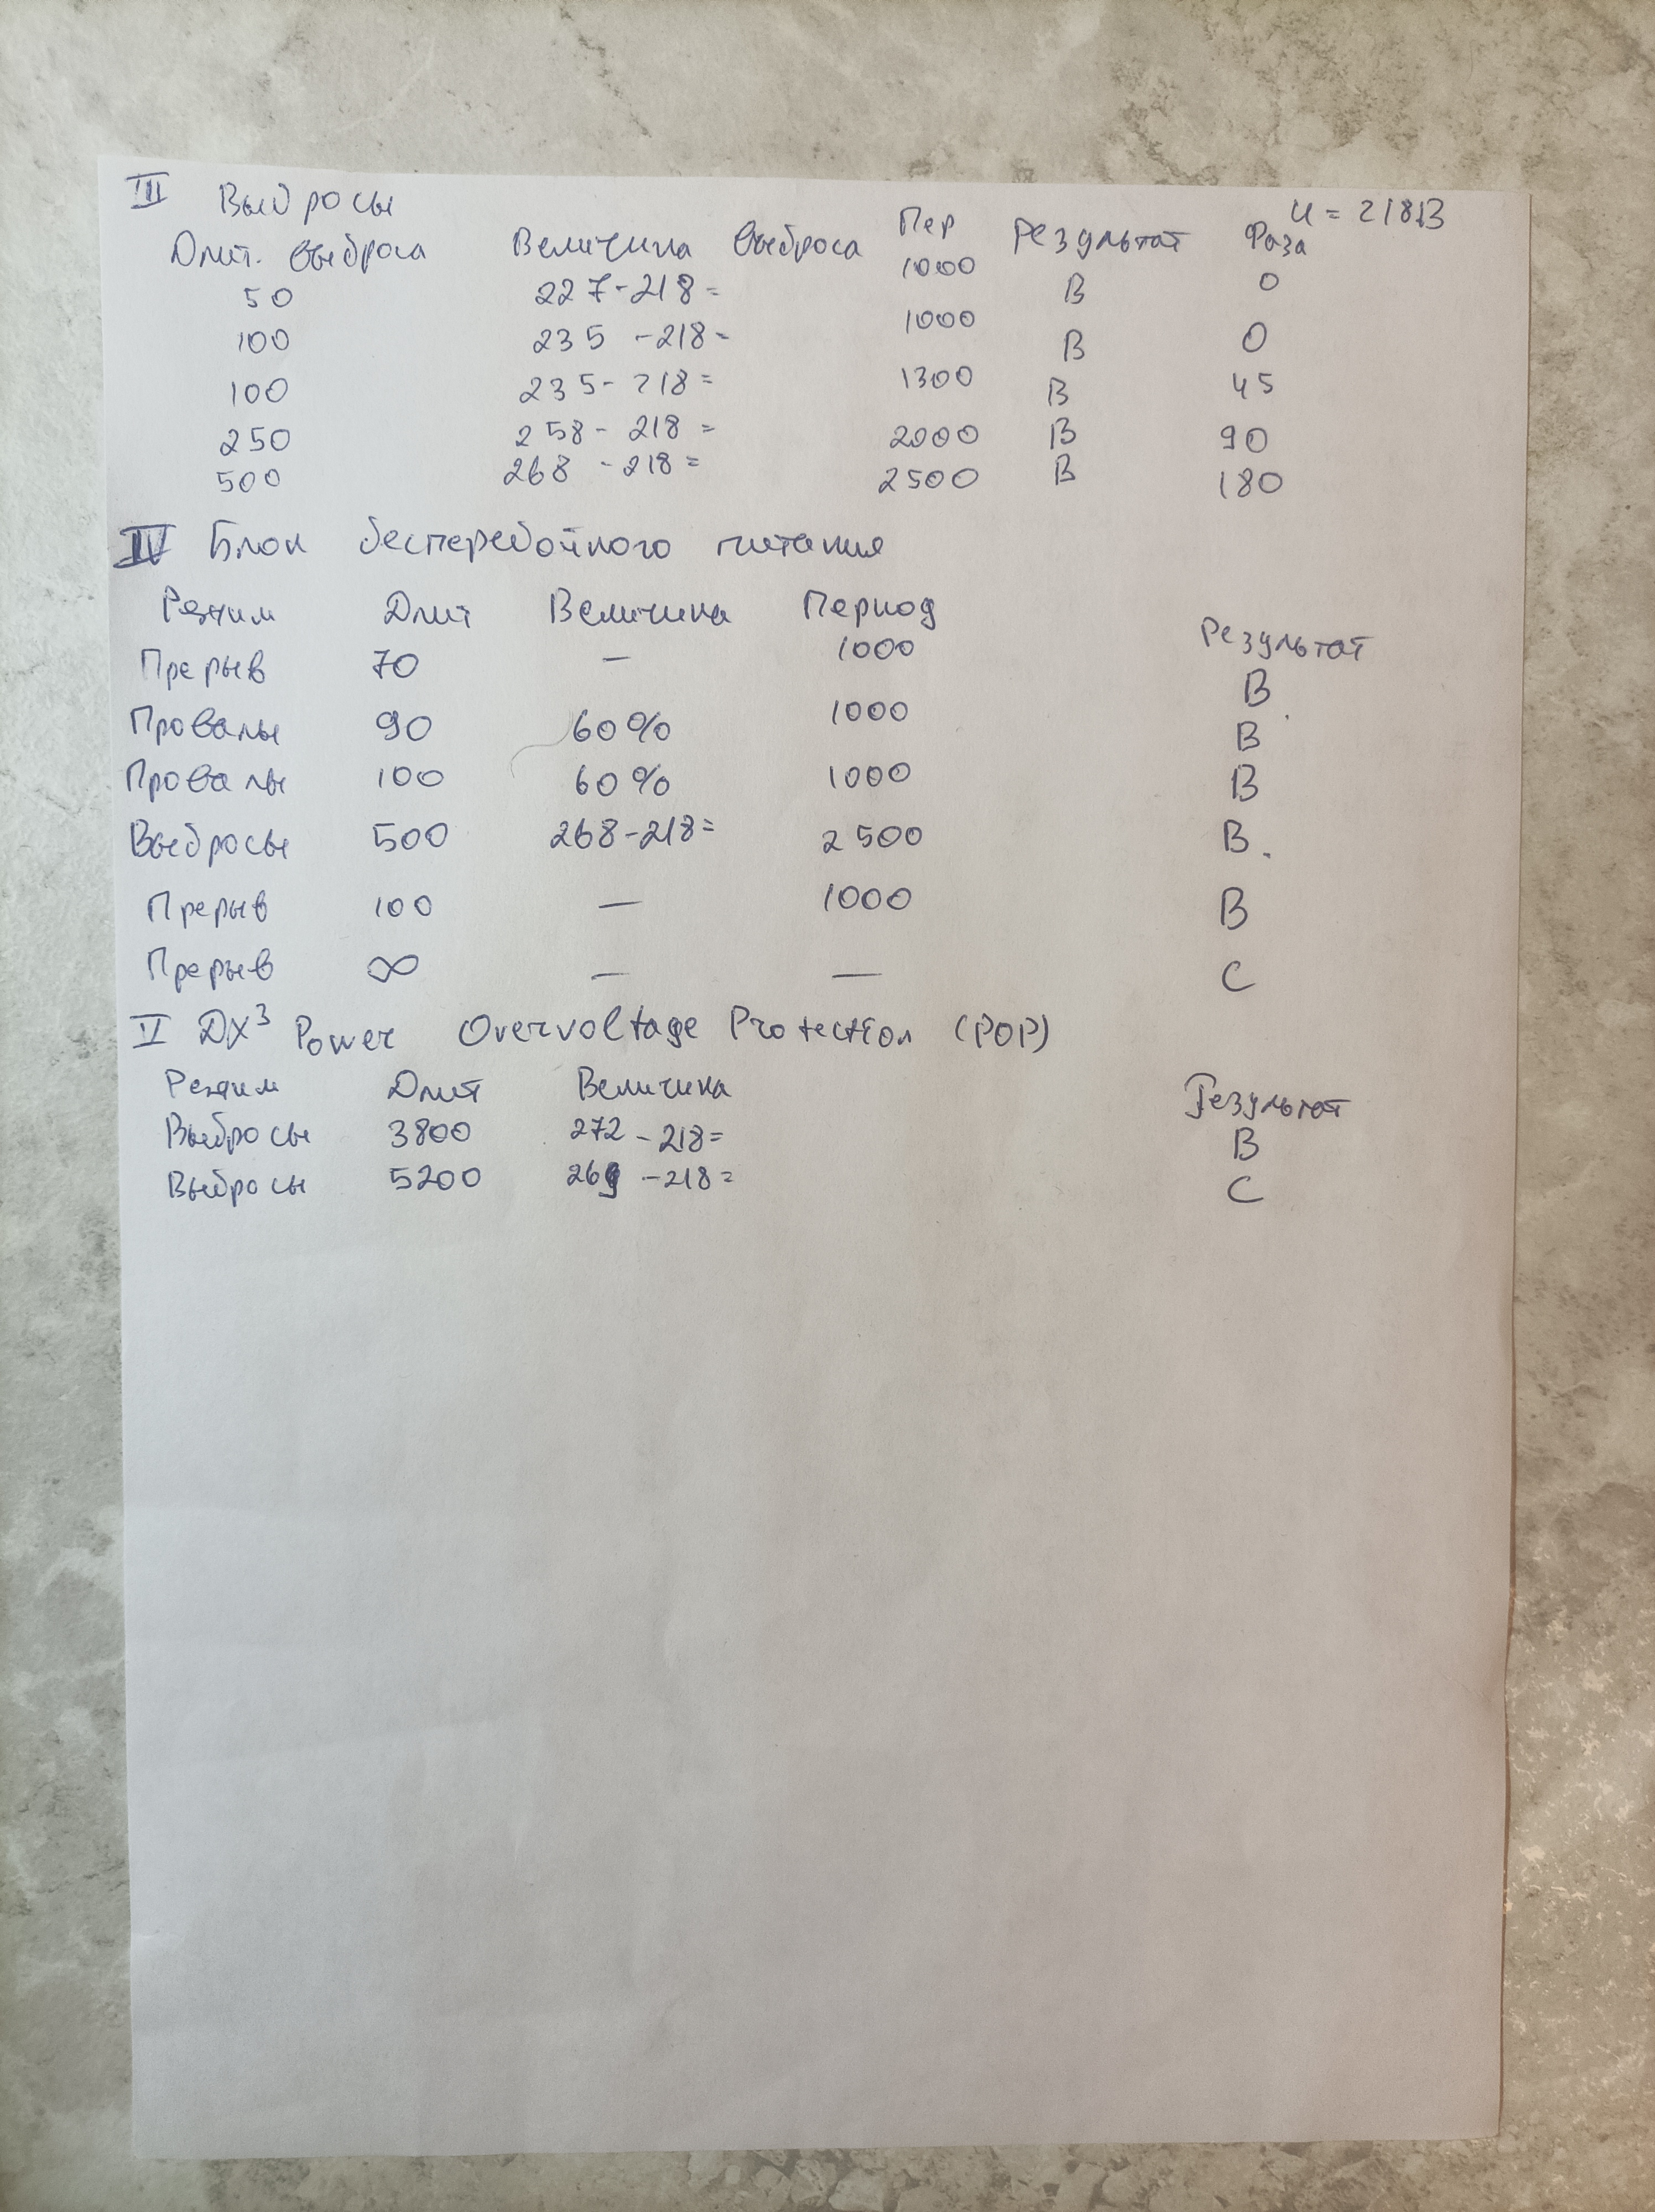 III Выбросы U = 218В
Длит. выброса Величина выброса Пер Результат Фаза
50 227-218= 1000 В 0
100 235 -218= 1000 В 0
100 235- 218= 1300 В 45
250 258- 218 = 2000 В 90
500 268 -218= 2500 В 180
IV Блок бесперебойного питания
Режим Длит Величина Период Результат
Прерыв 70 — 1000 В
Провалы 90 60% 1000 В
Провалы 100 60% 1000 В
Выбросы 500 268-218= 2500 В.
Прерыв 100 — 1000 В
Прерыв ∞ — — С
V DX³ Power Overvoltage Protection (POP)
Режим Длит Величина Результат
Выбросы 3800 272 -218= В
Выбросы 5200 269 -218= С